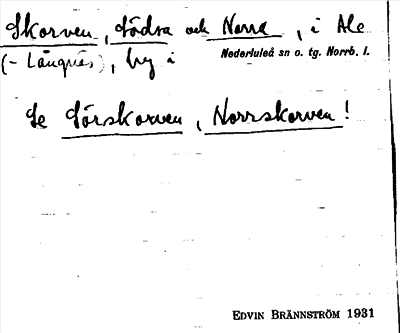 Skorven, Södra och Norra, i Ale
(- Långnäs), by i Nederluleå sn o. tg. Norrb. l.
Se Sörskorven, Norrskorven!
EDVIN BRÄNNSTRÖM 1931